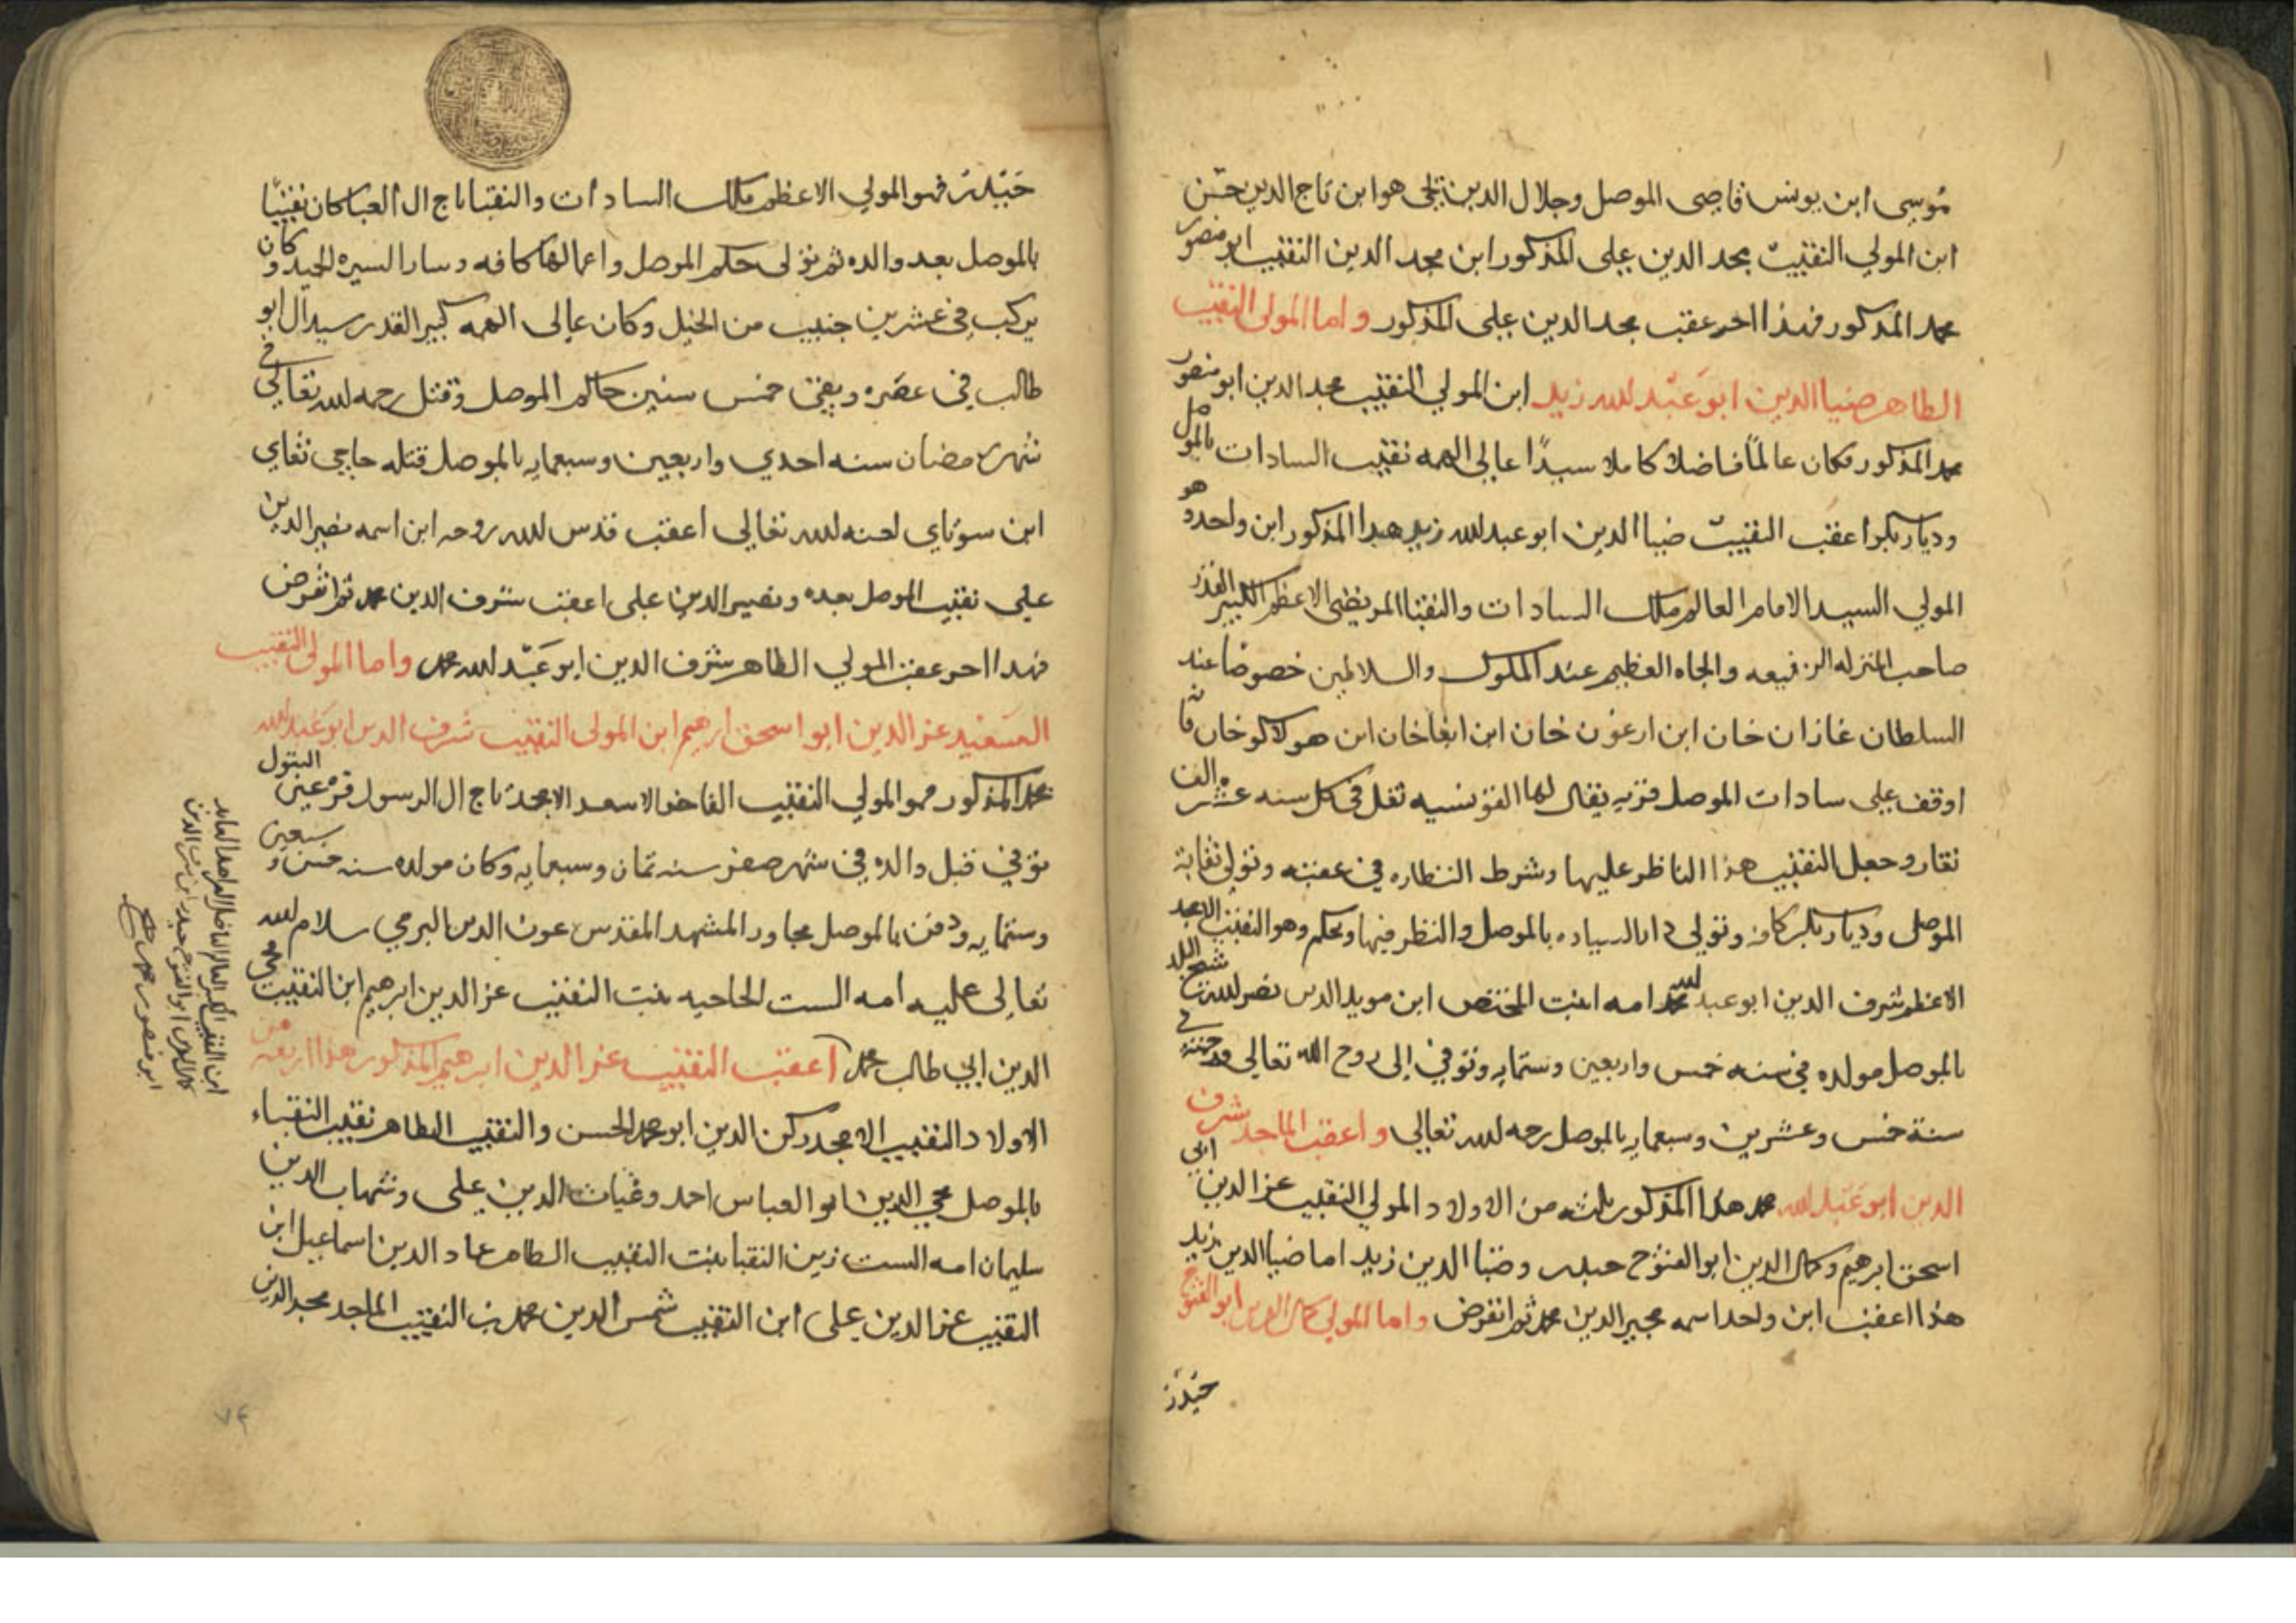 موسى ابن يونس قاضى الموصل وجلال الدين يحيى هو ابن تاج الدين حسن
ابن المولي النقيب مجد الدين علي المذكور ابن مجد الدين النقيب ابو منصور
محمد المذكور فهذا اخر عقب مجد الدين على المذكور واما المولى النقيب
الطاهر ضيا الدين ابو عبد لله زيد ابن المولي النقيب مجد الدين ابو منصور
محمد المذكور فكان عالمًا فاضلا كاملا سيدًا عالي الهمه نقيب السادات بالموصل
وديار بكر اعقب النقيب ضيا الدين ابو عبد لله زيد هذا المذكور ابن واحد وهو
المولي السيد الامام العالم ملك السادات والنقبا المرتضى الاعظم الكبير القدر
صاحب المنزله الرفيعه والجاه العظيم عند الملوك والسلاطين خصوصًا عند
السلطان غازان خان ابن ارغون خان ابن ابغا خان ابن هولاكو خان فانه
اوقف على سادات الموصل قريه يقال لها تغل في كل سنه عشره الف
تغار وجعل النقيب هذا الناظر عليها وشرط النظاره في عقبه وتولى نقابة
الموصل وديار بكر كافه وتولي دار السياده بالموصل والنظر فيها وتحكم وهو النقيب الامجد
الاعظم شرف الدين ابو عبد لله محمد امه ابنت المختص ابن مويد الدين نصر لله شيخ البلد
بالموصل مولده في سنه خمس واربعين وستمايه وتوفي إلى روح الله تعالى وجنته في
سنة خمس وعشرين وسبعمايه بالموصل رحمه لله تعالي واعقب الماجد شرف
الدين ابو عبد لله محمد هذا المذكور ثلثه من الاولاد المولي النقيب عز الدين ابي
اسحق ابرهيم وكمال الدين ابو الفتوح حيدر وضيا الدين زيد اما ضيا الدين زيد
هذا اعقب ابن واحد اسمه مجير الدين محمد ثم انقرض واما المولي كمال الدين ابو الفتوح
حيدر
حيدر فهو المولي الاعظم ملك السادات والنقبا تاج ال العبا كان نقيبًا
بالموصل بعد والده ثم تولى حكم الموصل واعمالها كافه وسار السيره الجيده وكان
يركب في عشرين جنيب من الخيل وكان عالى الهمه كبير القدر سيد ال ابو
طالب في عصره وبقى خمس سنين حاكم الموصل وقتل رحمه لله تعالى في
شهر رمضان سنه احدي واربعين وسبعمايه بالموصل قتله حاجي تغاي
ابن سوتاي لعنه لله تعالي اعقب قدس لله روحه ابن اسمه نصير الدين
علي نقيب الموصل بعده ونصير الدين على اعقب شرف الدين محمد ثم انقرض
فهذا اخر عقب المولي الطاهر شرف الدين ابو عبد لله محمد واما المولى النقيب
السعيد عز الدين ابو اسحق ابرهيم ابن المولى النقيب شرف الدين ابو عبد لله
محمد المذكور فهو المولي النقيب الفاخر الاسعد الامجد تاج ال الرسول قرة عين البتول
توفي قبل والده في شهر صفر سنه ثمان وسبعمايه وكان مولده سنه خمس وسبعين
وستمايه ودفن بالموصل مجاور المشهد المقدس عون الدين البرمي سلام لله
تعالى عليه امه الست الحاجيه بنت النقيب عز الدين ابرهيم ابن النقيب محيى
الدين ابي طالب محمد اعقب النقيب عز الدين ابرهيم المذكور هذا اربعه من
الاولاد النقيب الامجد ركن الدين ابو محمد الحسن والنقيب الطاهر نقيب النقباء
بالموصل محي الدين ابو العباس احمد وغياث الدين على وشهاب الدين
سليمان امه الست زين النقبا بنت النقيب الطاهر عماد الدين اسماعيل ابن
النقيب عز الدين على ابن النقيب شمس الدين محمد بن النقيب الماجد مجد الدين
ابن النقيب الكبير العالم الفاضل الزاهد العابد
كمال الدين ابو الفتوح حيدر ابن شرف الدين
ابو منصور محمد
٧٤